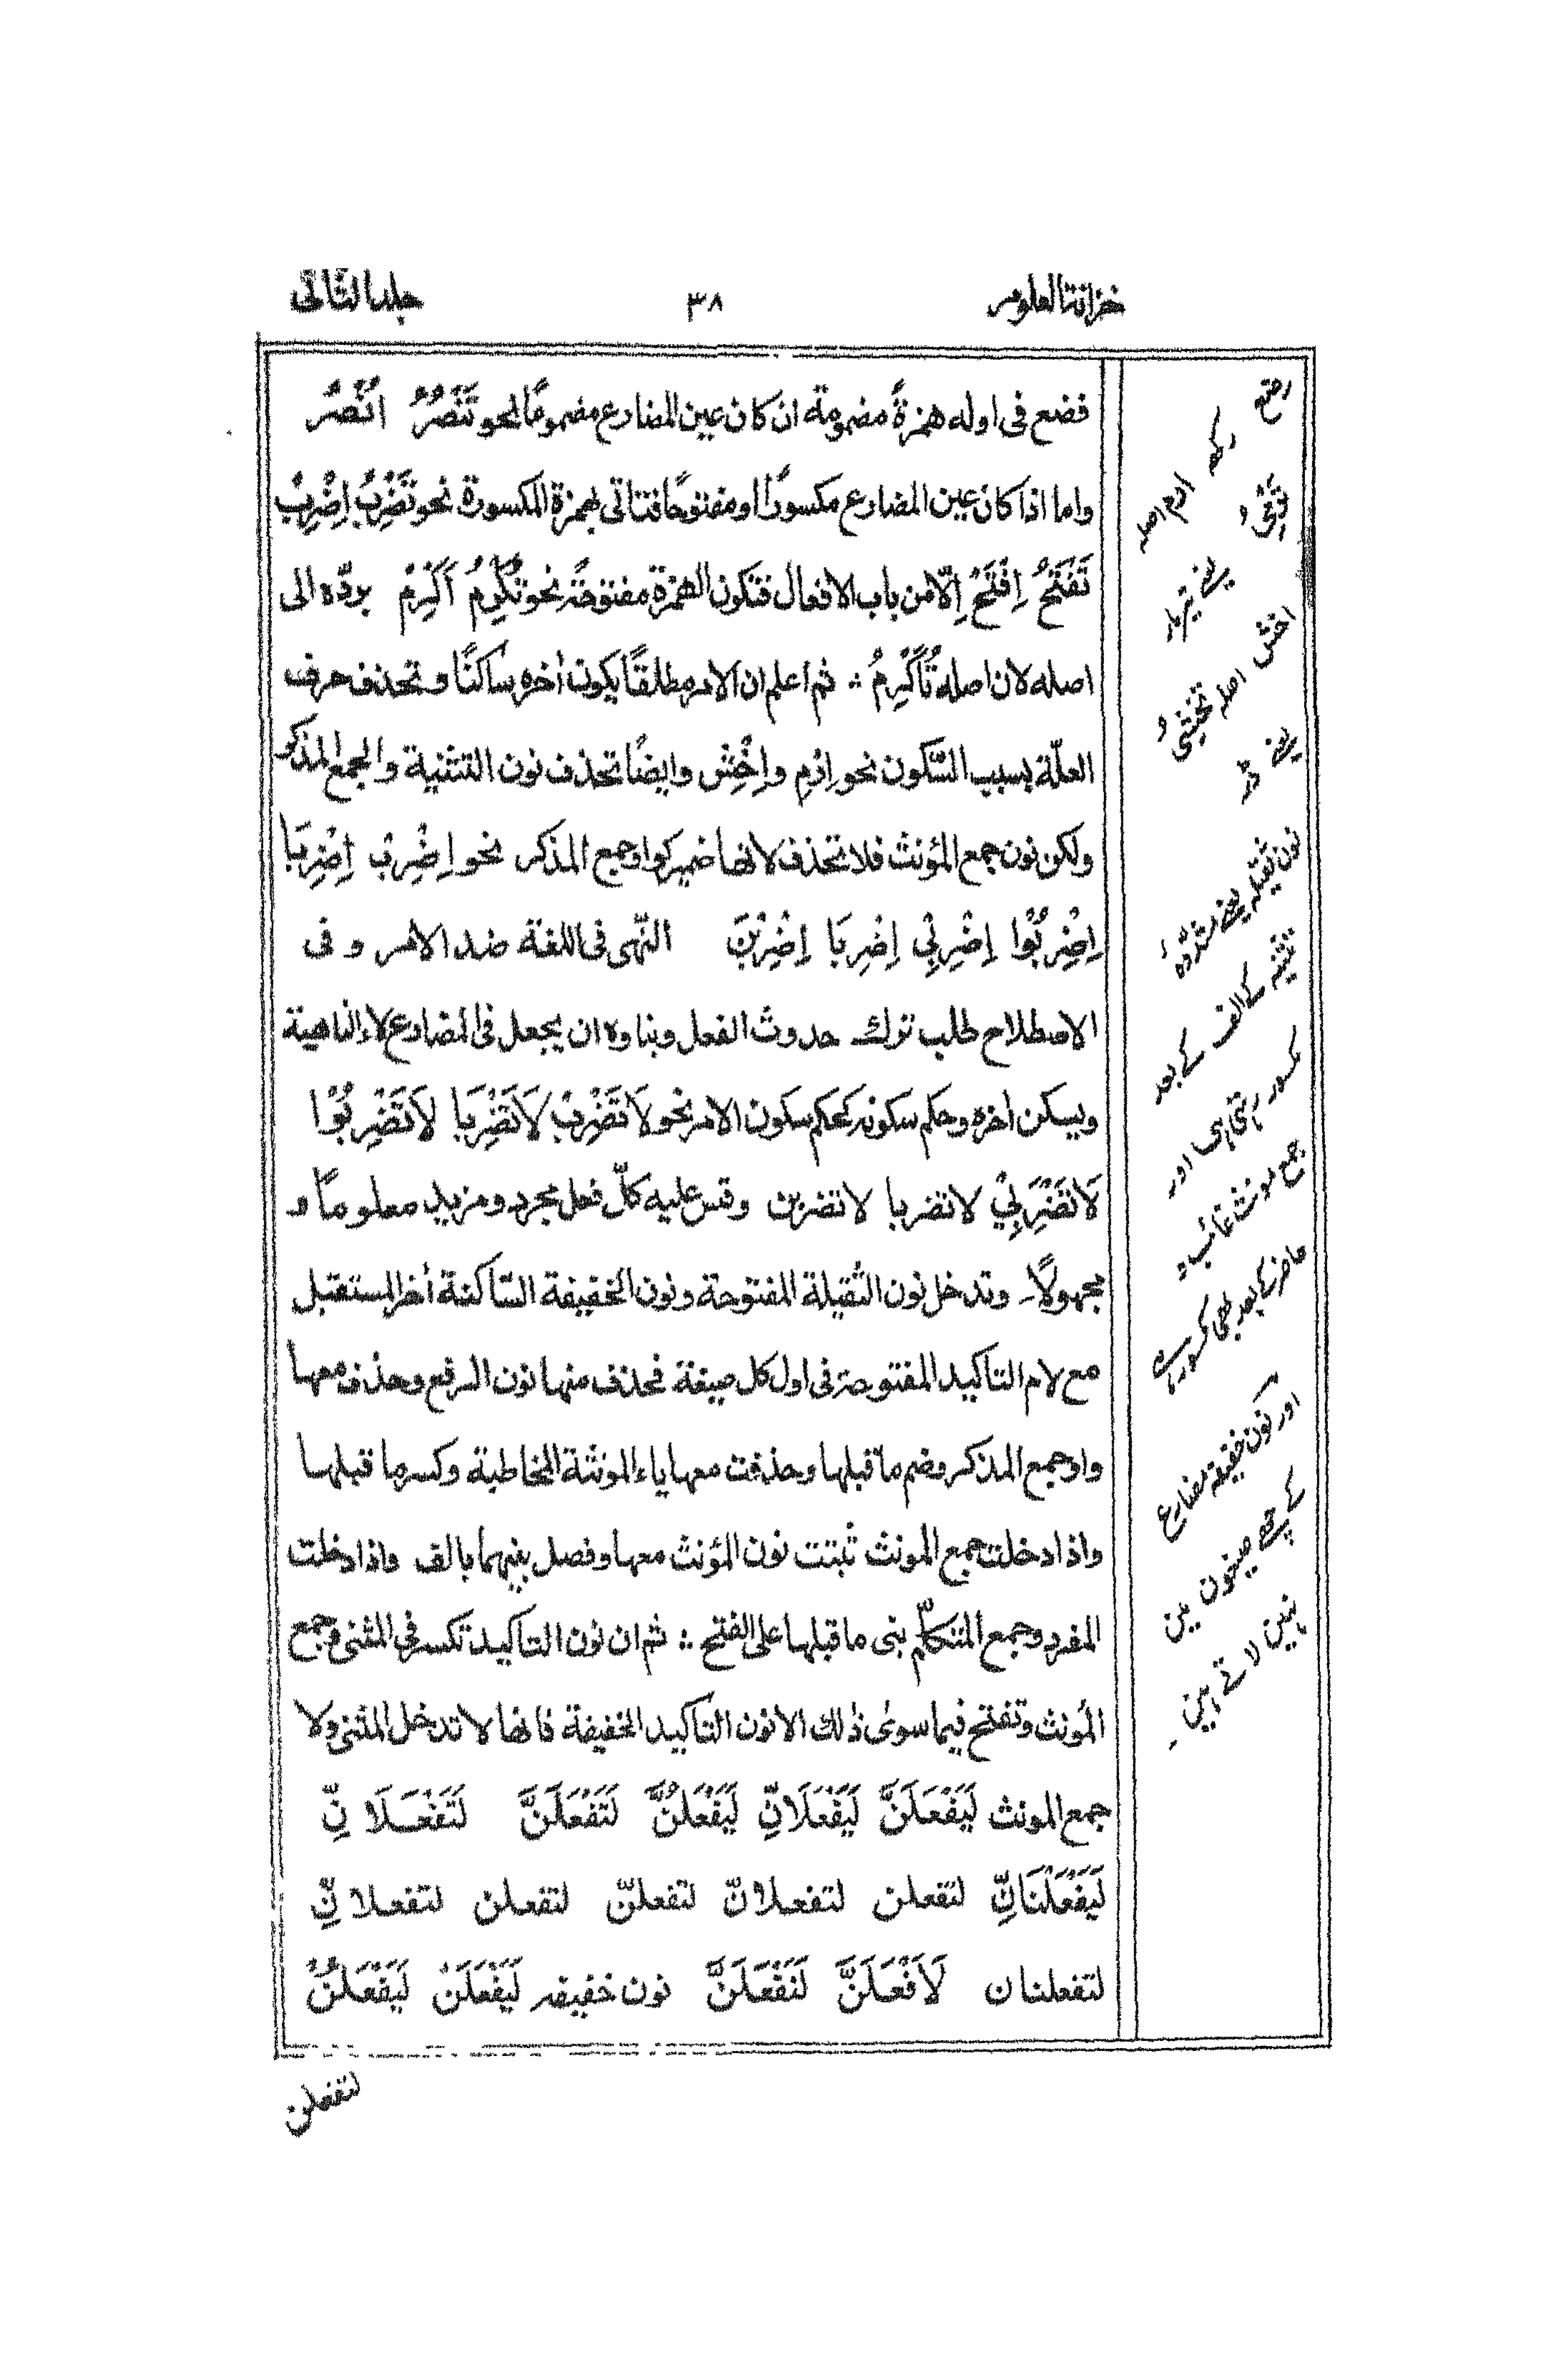 خزانة العلوم ٣٨ جلد الثانی
فضع فی اوله همزةً مضمومة ان كان عین المضارع مضمومًا نحو تَنْصُرُ اُنْصُرْ
واما اذا كان عین المضارع مكسورًا او مفتوحًا فتاتی بهمزة المكسورة نحو تَضْرِبُ اِضْرِبْ
تَفْتَحُ اِفْتَحْ اِلّا من باب الافعال فتكون الهمزة مفتوحةً نحو تُكْرِمُ اَكْرِمْ بردّه الی
اصله لان اصله تُأَكْرِمُ ؞ ثم اعلم ان الامر مطلقًا یكون اٰخره ساكنًا و تحذف حرف
العلّة بسبب السّكون نحو اِرْمِ واِخْشَ وایضًا تحذف نون التثنیة والجمع المذكر
ولكن نون جمع المؤنث فلا تحذف لانها ضمیر كواو جمع المذكر نحو اِضْرِبْ اِضْرِبَا
اِضْرِبُوْا اِضْرِبِیْ اِضْرِبَا اِضْرِبْنَ النّهی فی اللغة ضد الامر و فی
الاصطلاح طلب ترك حدوث الفعل وبناوه ان یجعل فی المضارع لاء الناهیة
ویسكن اٰخره وحكم سكونه كحكم سكون الامر نحو لَا تَضْرِبْ لَا تَضْرِبَا لَا تَضْرِبُوْا
لَا تَضْرِبِیْ لا تضربا لا تضربن وقس علیه كلّ فعل مجرد ومزید معلومًا و
مجهولًا۔ وتدخل نون الثّقیلة المفتوحة ونون الخفیفة السّاكنة اٰخر المستقبل
مع لام التاكید المفتوحة فی اول كل صیغة فحذف منها نون الرفع وحذف معها
واو جمع المذكر وضم ما قبلها وحذفت معها یاء المونثة المخاطبة وكسر ما قبلها
واذا دخلت جمع المونث ثبتت نون المؤنث معها وفصل بینهما بالف واذا دخلت
المفرد وجمع المتكلّم بنی ما قبلها علی الفتح ؞ ثم ان نون التاكید تكسر فی المثنی وجمع
المؤنث وتفتح فیما سوٰی ذٰلك الا نون التاكید الخفیفة فانها لا تدخل المثنی ولا
جمع المونث لَیَفْعَلَنَّ لَیَفْعَلَانِّ لَیَفْعَلُنَّ لَتَفْعَلَنَّ لَتَفْعَلَا نِّ
لَیَفْعَلْنَانِّ لتفعلن لتفعلانّ لتفعلنّ لتفعلن لتفعلا نِّ
لتفعلنان لَاَفْعَلَنَّ لَنَفْعَلَنَّ نون خفیفه لَیَفْعَلَنْ لَیَفْعَلُنْ
لتفعلن
ركھ ارم اصله
یعنے تیر مار
اخش اصله تخشیُ
یعنے ڈر
نون ثقیله یعنے مشدّدہ
تثنیہ كے الف كے بعد
مكسور رہتی ہی اور
جمع مونث غائب و
حاضر كے بعد بھی كسورہے
اور نون خفیفه مضارع
كے صیغون مین
نہین لاتے ہین۔